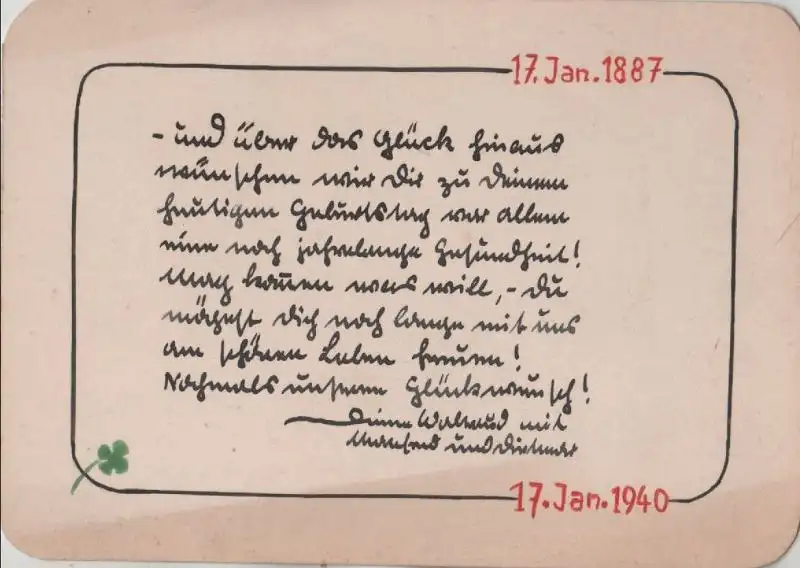 17. Jan. 1887
- und über das Glück hinaus
wünschen wir Dir zu Deinem
heutigen Geburtstag vor allem
eine noch jahrelange Gesundheit!
Mag kom̄en was will, - Du
mögest Dich noch lange mit uns
am schönen Leben freuen!
Nochmals unseren Glückwunsch!
Deine Waltraud mit
Manfred und Dietmar
17. Jan. 1940